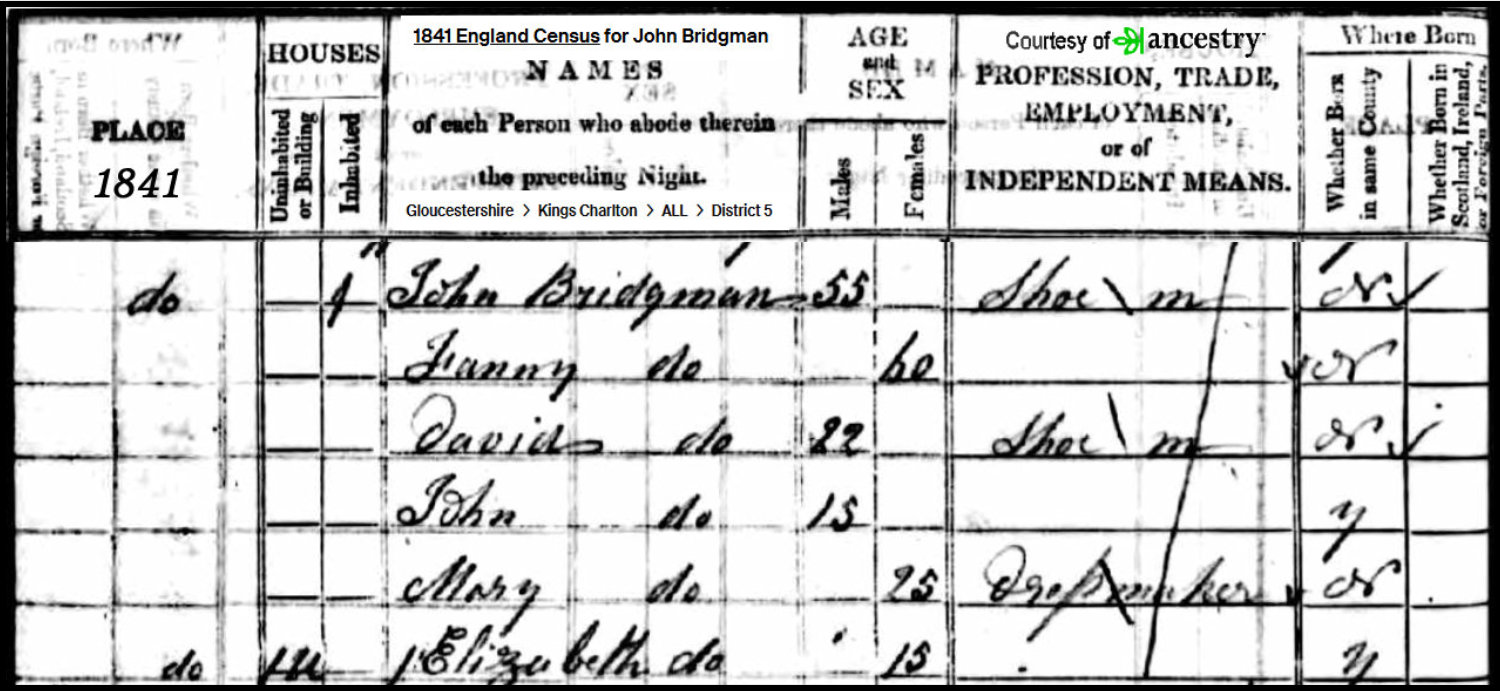 1841 England Census for John Bridgman
Courtesy of ancestry
PLACE
1841
HOUSES
Uninhabited or Building
Inhabited
NAMES
of each Person who abode therein
the preceding Night.
Gloucestershire > Kings Charlton > ALL > District 5
AGE
and
SEX
Males
Females
PROFESSION, TRADE,
EMPLOYMENT,
or of
INDEPENDENT MEANS.
Where Born
Whether Born in same County
Whether Born in Scotland, Ireland, or Foreign Parts.
do 1 John Bridgman 55 Shoe m N
Fanny do 60 N
David do 22 Shoe m N
John do 15 y
Mary do 25 Dressmaker N
do Elizabeth do 15 y